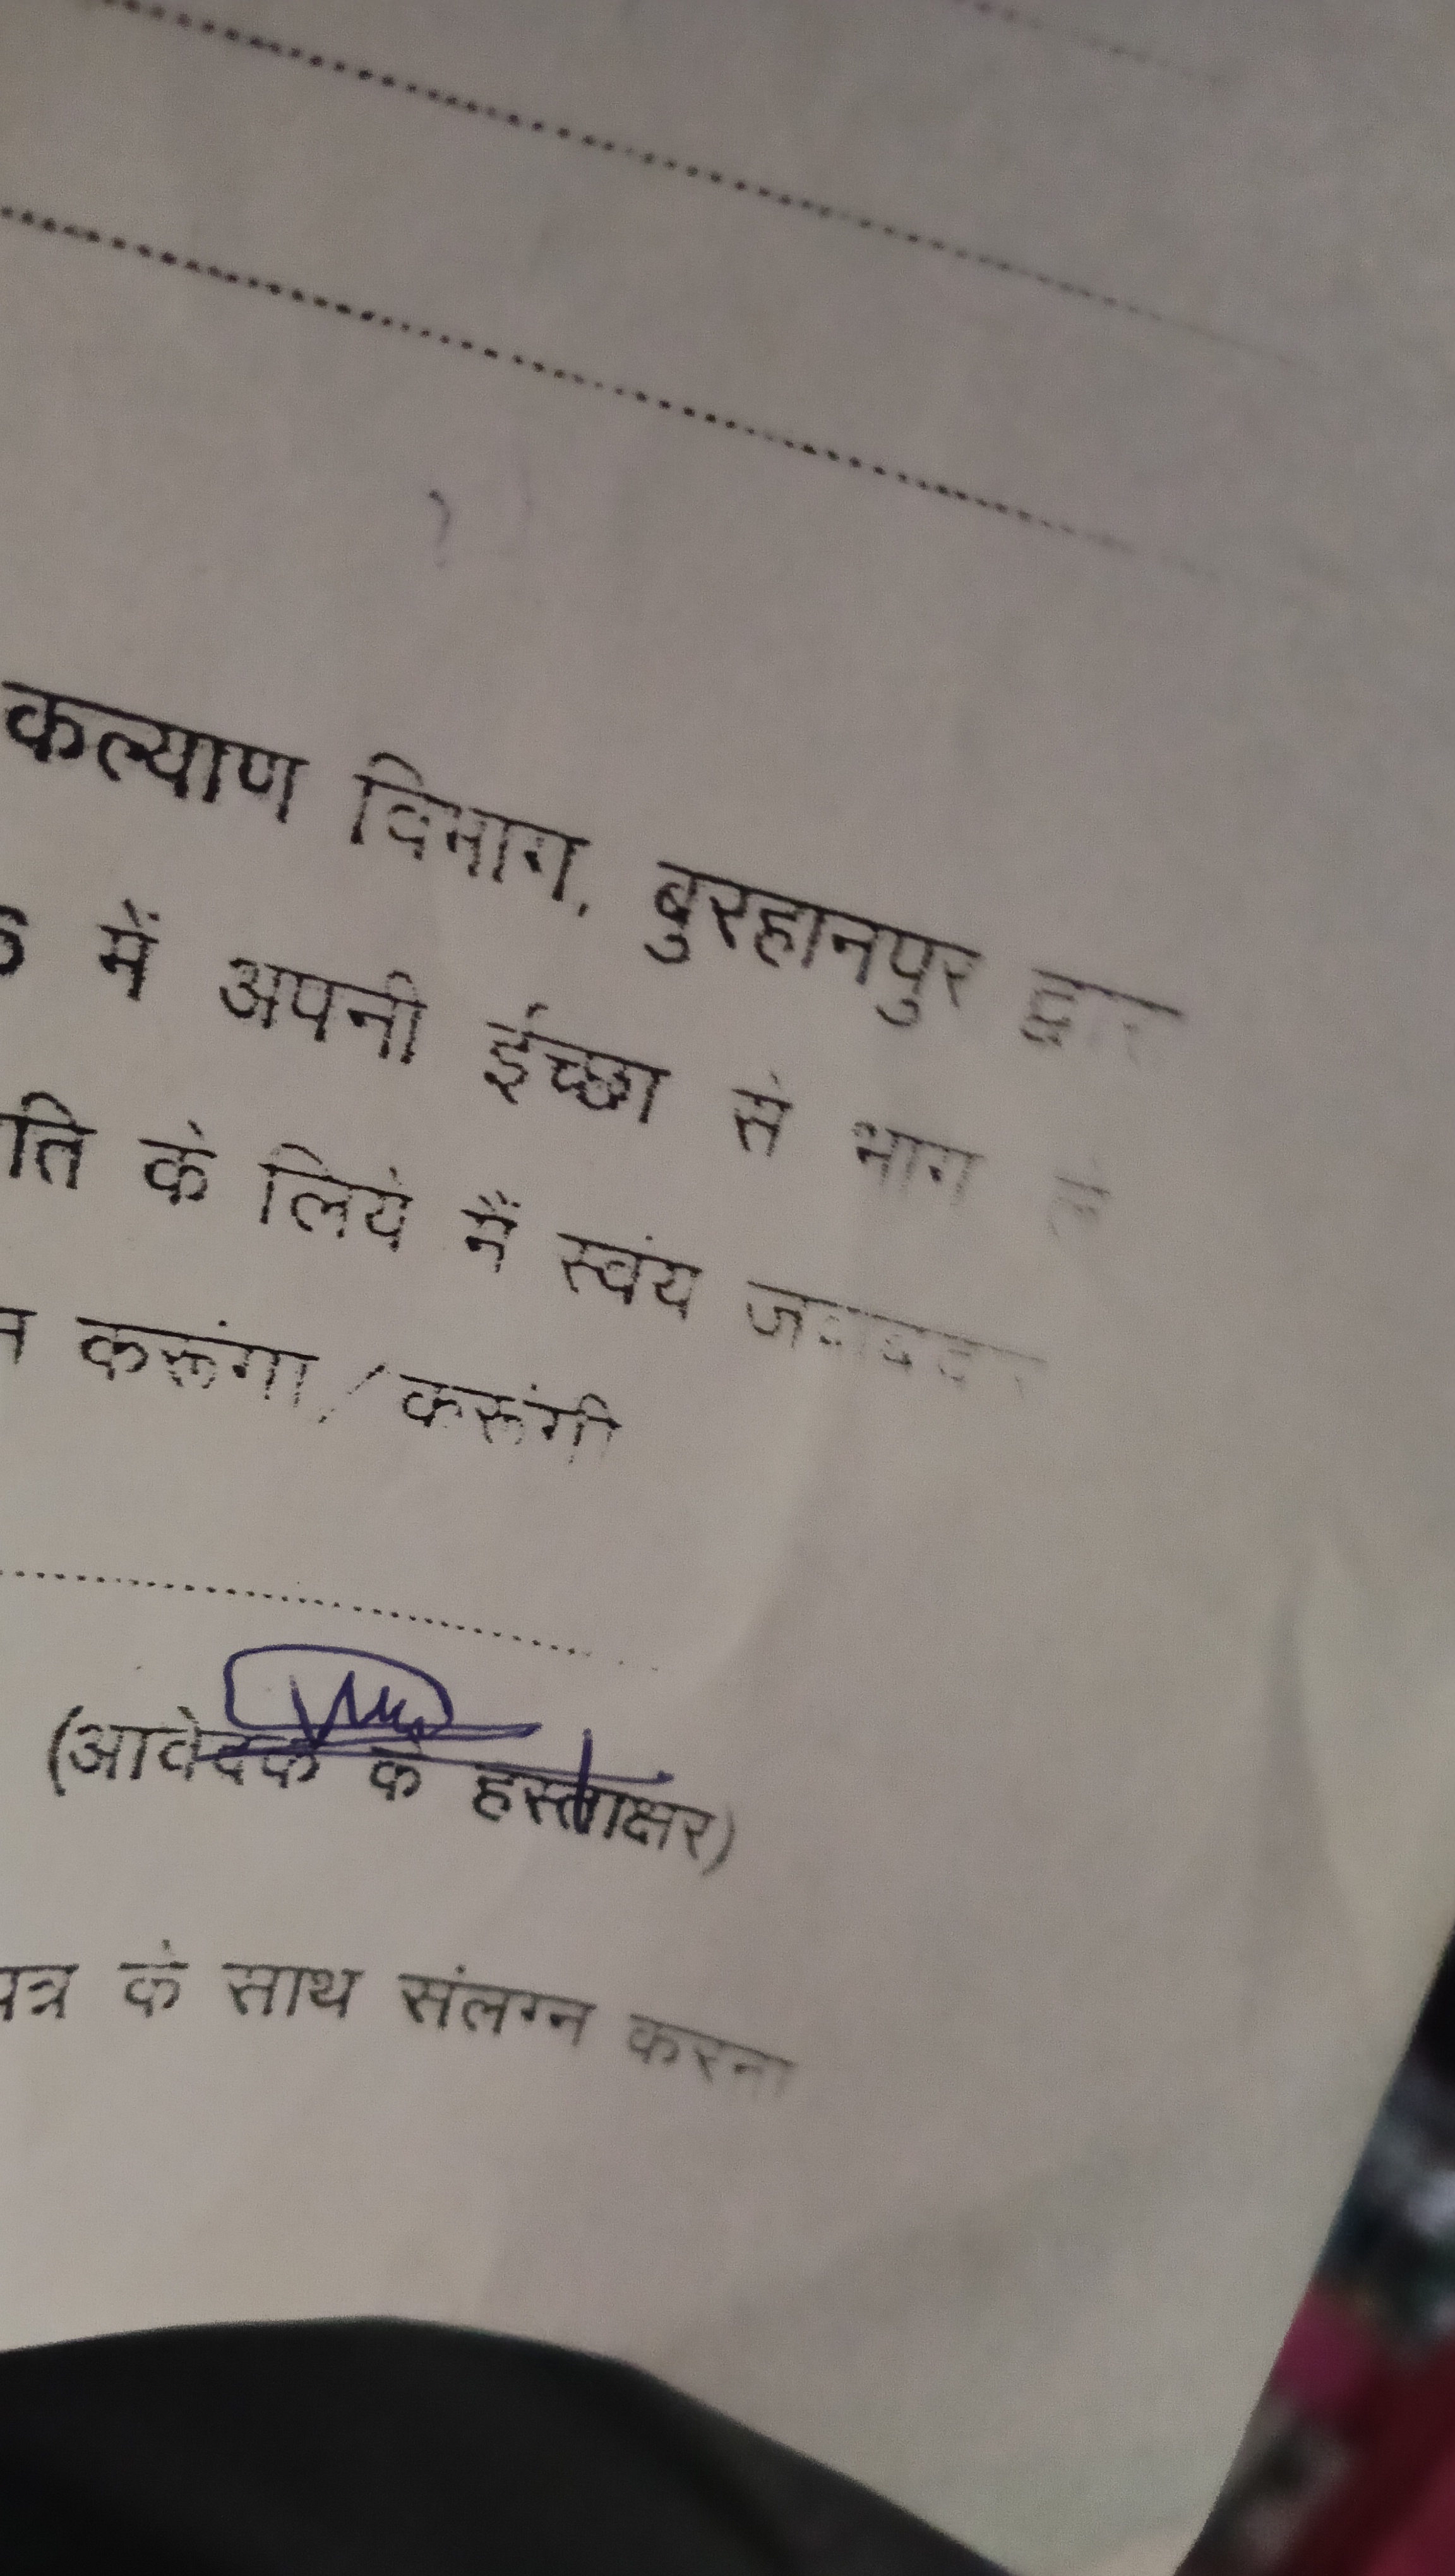 कल्याण विभाग, बुरहानपुर द्वारा
में अपनी ईच्छा से भाग ले
ति के लिये मैं स्वंय जवाबदार
न करूंगा/करूंगी
(आवेदक के हस्ताक्षर)
पत्र के साथ संलग्न करना